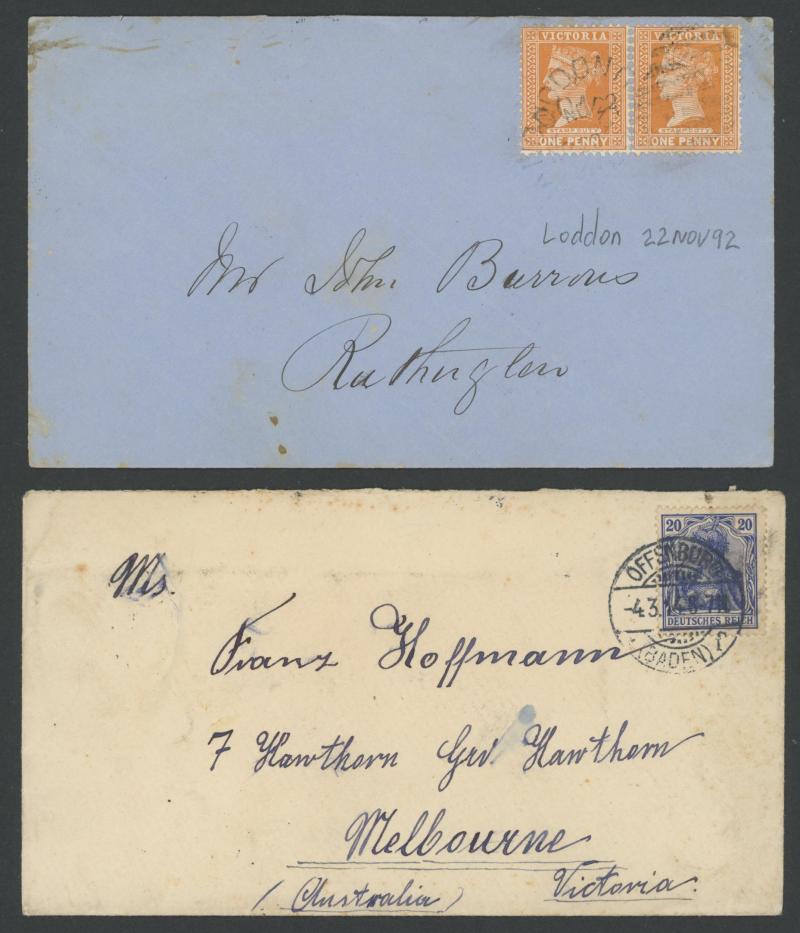 VICTORIA VICTORIA
STAMP DUTY STAMP DUTY
ONE PENNY ONE PENNY
Loddon 22 NOV 92
Mr John Burrows
Rutherglen
20 20
DEUTSCHES REICH
OFFENBURG
-4.3.
(BADEN) 2
Ms.
Franz Hoffmann
7 Hawthorn Grv Hawthorn
Melbourne
(Australia) Victoria.